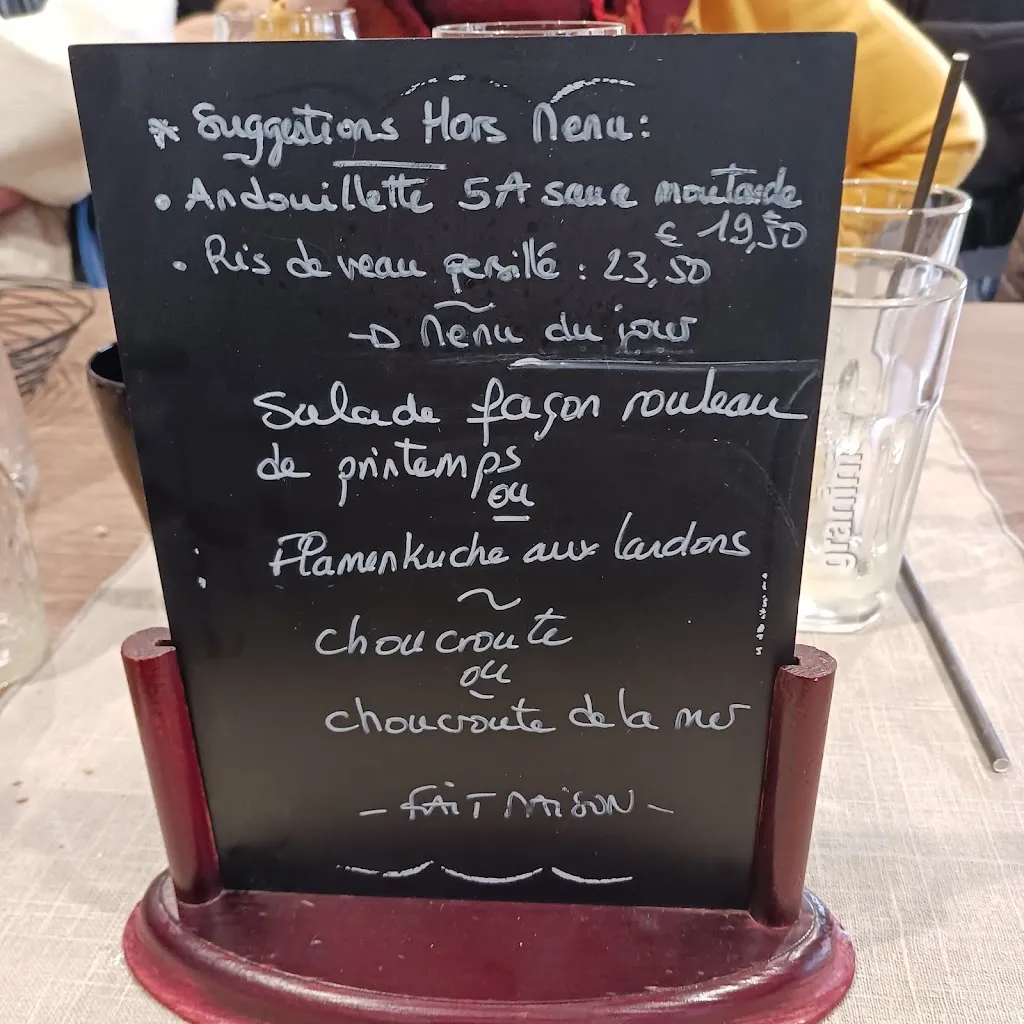 * Suggestions Hors Menu:
• Andouillette 5A sauce moutarde
€ 19,50
• Ris de veau persillé : 23,50
→ Menu du jour
Salade façon rouleau
de printemps
ou
Flamenkuche aux lardons
~
choucroute
ou
choucroute de la mer
- FAIT MAISON -
granini